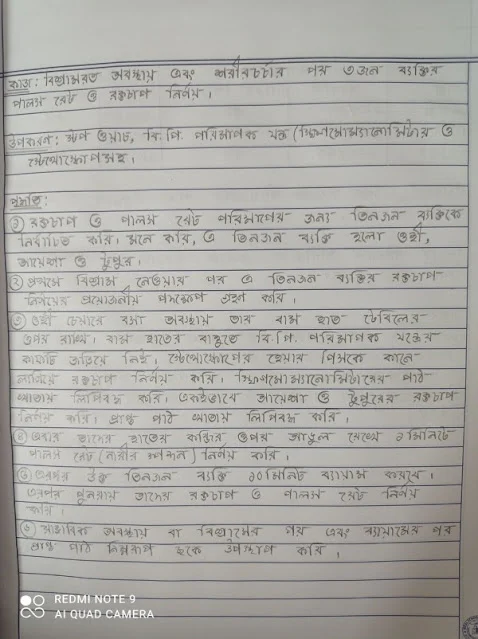 কাজ: বিশ্রামরত অবস্থায় এবং শরীরচর্চার পর ৩জন ব্যক্তির
পালস রেট ও রক্তচাপ নির্ণয়।
উপকরণ: স্টপ ওয়াচ, বি.পি. পরিমাপক যন্ত্র (স্ফিগমোম্যানোমিটার ও
স্টেথোস্কোপসহ।
পদ্ধতি:
① রক্তচাপ ও পালস রেট পরিমাপের জন্য তিনজন ব্যক্তিকে
নির্বাচিত করি। মনে করি, এ তিনজন ব্যক্তি হলো ওহী,
আয়েশা ও টুপুর।
② প্রথমে বিশ্রাম নেওয়ার পর এ তিনজন ব্যক্তির রক্তচাপ
নির্ণয়ের প্রয়োজনীয় পদক্ষেপ গ্রহণ করি।
③ ওহী চেয়ারে বসা অবস্থায় তার বাম হাত টেবিলের
উপর রাখি। বাম হাতের বাহুতে বি.পি. পরিমাপক যন্ত্রের
কাফটি জড়িয়ে নিই। স্টেথোস্কোপের হেয়ার পিসকে কানে
লাগিয়ে রক্তচাপ নির্ণয় করি। স্ফিগমোম্যানোমিটারের পাঠ
খাতায় লিপিবদ্ধ করি। একইভাবে আয়েশা ও টুপুরের রক্তচাপ
নির্ণয় করি। প্রাপ্ত পাঠ খাতায় লিপিবদ্ধ করি।
④ এবার তাদের হাতের কব্জির উপর আঙুল রেখে ১মিনিটে
পালস রেট (নাড়ীর স্পন্দন) নির্ণয় করি।
⑤ এরপর উক্ত তিনজন ব্যক্তি ১০মিনিট ব্যায়াম করবে।
এরপর পুনরায় তাদের রক্তচাপ ও পালস রেট নির্ণয়
করি।
⑥ স্বাভাবিক অবস্থায় বা বিশ্রামের পর এবং ব্যায়ামের পর
প্রাপ্ত পাঠ নিম্নরূপ ছকে উপস্থাপ করি।
REDMI NOTE 9
AI QUAD CAMERA